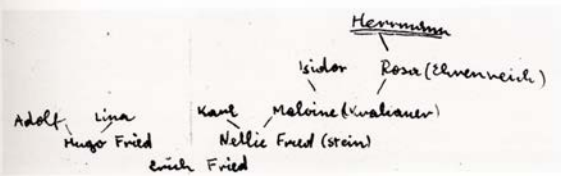 Herrmann
Isidor Rosa (Ehrenreich)
Adolf Lina Karl Malvine (Krakauer)
Hugo Fried Nellie Fried (Stein)
Erich Fried